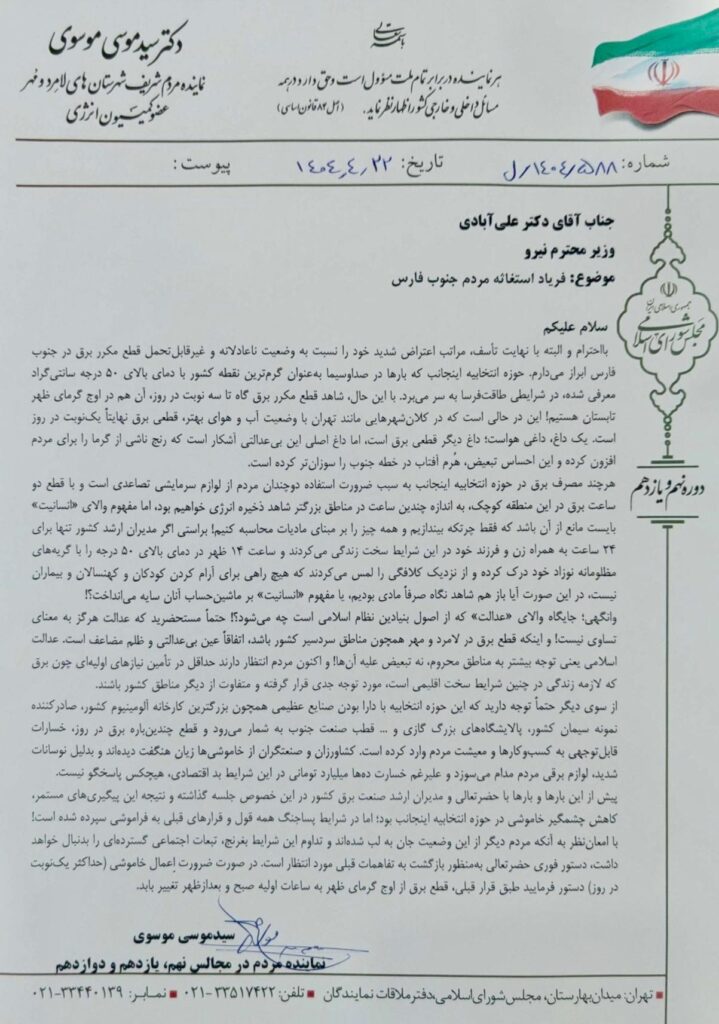 باسمه تعالی
دکتر سید موسی موسوی
نماینده مردم شریف شهرستان های لامرد و مهر
عضو کمیسیون انرژی
هر نماینده در برابر تمام ملت مسؤول است و حق دارد در همه
مسائل داخلی و خارجی کشور اظهار نظر نماید. (اصل ۸۴ قانون اساسی)
شماره: ۵۸۸/۱۴۰۴/ل تاریخ: ۱۴۰۴٫۴٫۲۲ پیوست:
جناب آقای دکتر علی‌آبادی
وزیر محترم نیرو
موضوع: فریاد استغاثه مردم جنوب فارس
سلام علیکم
بااحترام و البته با نهایت تأسف، مراتب اعتراض شدید خود را نسبت به وضعیت ناعادلانه و غیرقابل‌تحمل قطع مکرر برق در جنوب
فارس ابراز می‌دارم. حوزه انتخابیه اینجانب که بارها در صداوسیما به‌عنوان گرم‌ترین نقطه کشور با دمای بالای ۵۰ درجه سانتی‌گراد
معرفی شده، در شرایطی طاقت‌فرسا به سر می‌برد. با این حال، شاهد قطع مکرر برق گاه تا سه نوبت در روز، آن هم در اوج گرمای ظهر
تابستان هستیم! این در حالی است که در کلان‌شهرهایی مانند تهران با وضعیت آب و هوای بهتر، قطعی برق نهایتاً یک‌نوبت در روز
است. یک داغ، داغی هواست؛ داغ دیگر قطعی برق است، اما داغ اصلی این بی‌عدالتی آشکار است که رنج ناشی از گرما را برای مردم
افزون کرده و این احساس تبعیض، هُرم آفتاب در خطه جنوب را سوزان‌تر کرده است.
هرچند مصرف برق در حوزه انتخابیه اینجانب به سبب ضرورت استفاده دوچندان مردم از لوازم سرمایشی تصاعدی است و با قطع دو
ساعت برق در این منطقه کوچک، به اندازه چندین ساعت در مناطق بزرگتر شاهد ذخیره انرژی خواهیم بود، اما مفهوم والای «انسانیت»
بایست مانع از آن باشد که فقط چرتکه بیندازیم و همه چیز را بر مبنای مادیات محاسبه کنیم! براستی اگر مدیران ارشد کشور تنها برای
۲۴ ساعت به همراه زن و فرزند خود در این شرایط سخت زندگی می‌کردند و ساعت ۱۴ ظهر در دمای بالای ۵۰ درجه را با گریه‌های
مظلومانه نوزاد خود درک کرده و از نزدیک کلافگی را لمس می‌کردند که هیچ راهی برای آرام کردن کودکان و کهنسالان و بیماران
نیست، در این صورت آیا باز هم شاهد نگاه صرفاً مادی بودیم، یا مفهوم «انسانیت» بر ماشین‌حساب آنان سایه می‌انداخت؟!
وانگهی؛ جایگاه والای «عدالت» که از اصول بنیادین نظام اسلامی است چه می‌شود؟! حتماً مستحضرید که عدالت هرگز به معنای
تساوی نیست! و اینکه قطع برق در لامرد و مهر همچون مناطق سردسیر کشور باشد، اتفاقاً عین بی‌عدالتی و ظلم مضاعف است. عدالت
اسلامی یعنی توجه بیشتر به مناطق محروم، نه تبعیض علیه آن‌ها! و اکنون مردم انتظار دارند حداقل در تأمین نیازهای اولیه‌ای چون برق
که لازمه زندگی در چنین شرایط سخت اقلیمی است، مورد توجه جدی قرار گرفته و متفاوت از دیگر مناطق کشور باشند.
از سوی دیگر حتماً توجه دارید که این حوزه انتخابیه با دارا بودن صنایع عظیمی همچون بزرگترین کارخانه آلومینیوم کشور، صادرکننده
نمونه سیمان کشور، پالایشگاه‌های بزرگ گازی و ... قطب صنعت جنوب به شمار می‌رود و قطع چندین‌باره برق در روز، خسارات
قابل‌توجهی به کسب‌وکارها و معیشت مردم وارد کرده است. کشاورزان و صنعتگران از خاموشی‌ها زیان هنگفت دیده‌اند و بدلیل نوسانات
شدید، لوازم برقی مردم مدام می‌سوزد و علیرغم خسارت ده‌ها میلیارد تومانی در این شرایط بد اقتصادی، هیچکس پاسخگو نیست.
پیش از این بارها و بارها با حضرتعالی و مدیران ارشد صنعت برق کشور در این خصوص جلسه گذاشته و نتیجه این پیگیری‌های مستمر،
کاهش چشمگیر خاموشی در حوزه انتخابیه اینجانب بود؛ اما در شرایط پساجنگ همه قول و قرارهای قبلی به فراموشی سپرده شده است!
با امعان‌نظر به آنکه مردم دیگر از این وضعیت جان به لب شده‌اند و تداوم این شرایط بغرنج، تبعات اجتماعی گسترده‌ای را بدنبال خواهد
داشت، دستور فوری حضرتعالی به‌منظور بازگشت به تفاهمات قبلی مورد انتظار است. در صورت ضرورت اِعمال خاموشی (حداکثر یک‌نوبت
در روز) دستور فرمایید طبق قرار قبلی، قطع برق از اوج گرمای ظهر به ساعات اولیه صبح و بعدازظهر تغییر یابد.
سیدموسی موسوی
نماینده مردم در مجالس نهم، یازدهم و دوازدهم
جمهوری اسلامی ایران
مجلس شورای اسلامی
دوره نهم و یازدهم
تهران: میدان بهارستان، مجلس شورای اسلامی، دفتر ملاقات نمایندگان تلفن: ۳۳۵۱۷۴۲۲-۰۲۱ نمابر: ۳۳۴۴۰۱۳۹-۰۲۱